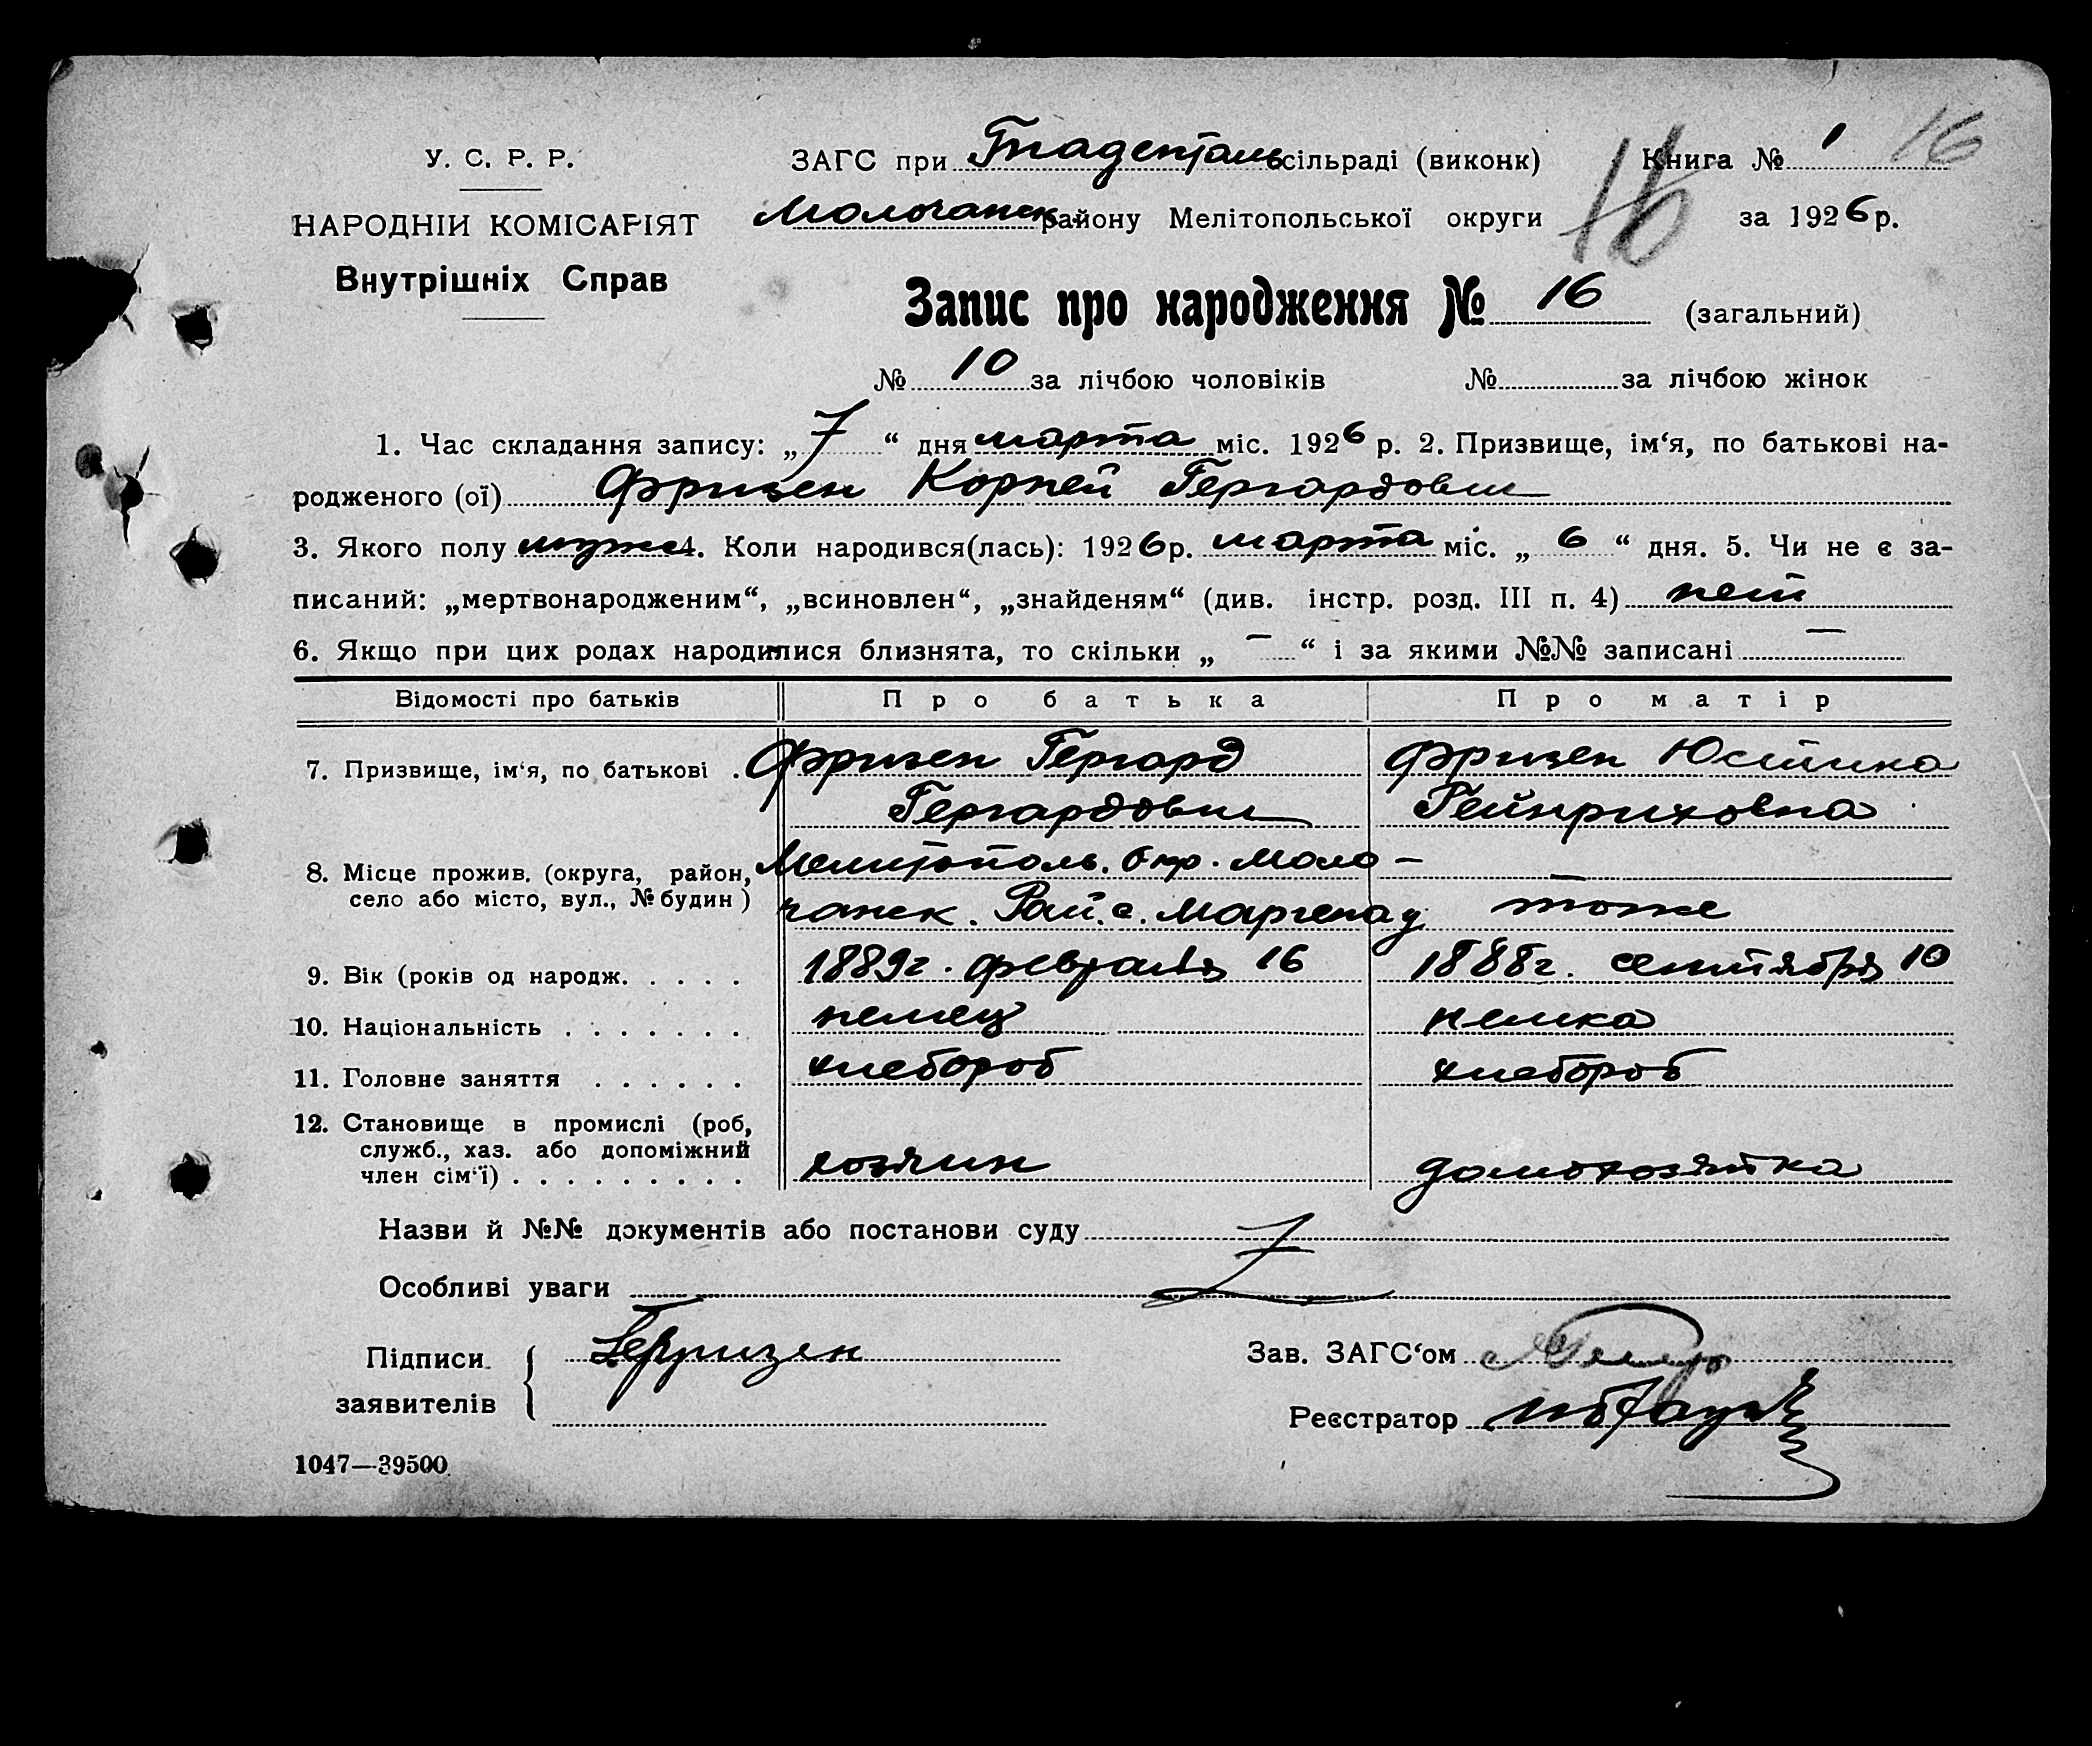 У. С. Р. Р.
НАРОДНІЙ КОМІСАРІЯТ
Внутрішніх Справ
ЗАГС при Гнаденталь сільраді (виконк) Книга № 1 16
Молочанск. району Мелітопольської округи 16 за 1926 р.
Запис про народження № 16 (загальний)
№ 10 за лічбою чоловіків № за лічбою жінок
1. Час складання запису: „ 7 “ дня марта міс. 1926 р. 2. Призвище, ім‘я, по батькові на-
родженого (ої) Фризен Корней Гергардович
3. Якого полу муж 4. Коли народився(лась): 1926 р. марта міс. „ 6 “ дня. 5. Чи не є за-
писаний: „мертвонародженим“, „всиновлен“, „знайденям“ (див. інстр. розд. III п. 4) нет
6. Якщо при цих родах народилися близнята, то скільки „ — “ і за якими №№ записані —
Відомості про батьків Про батька Про матір
7. Призвище, ім‘я, по батькові . Фризен Гергард Фризен Юстина
Гергардович Гейнриховна
8. Місце прожив. (округа, район, Мелитополь. Окр. Моло-
село або місто, вул., № будин) чанск. Рай. с. Маргенау тоже
9. Вік (років од народж. . . . . 1889 г. февраля 16 1888 г. сентября 10
10. Національність . . . . . . . немец немка
11. Головне заняття . . . . . . хлебороб хлебороб
12. Становище в промислі (роб,
служб., хаз. або допоміжний
член сім‘ї) . . . . . . . . . хозяин домохозяйка
Назви й №№ документів або постанови суду
Особливі уваги
Підписи Фризен Зав. ЗАГС‘ом
заявителів Реєстратор
1047—39500